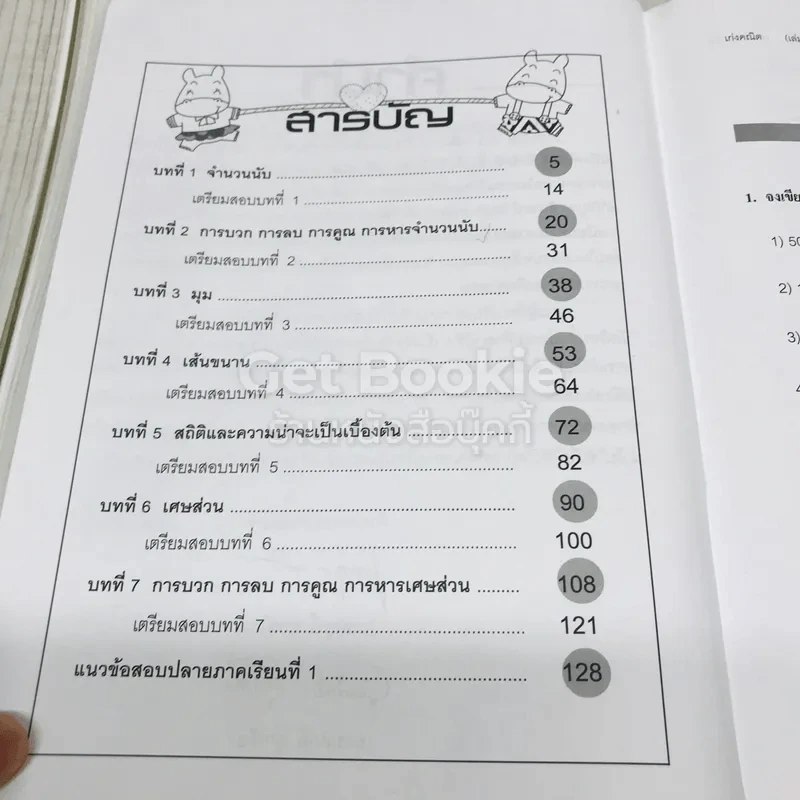 สารบัญ
บทที่ 1 จำนวนนับ ........ 5
เตรียมสอบบทที่ 1 ........ 14
บทที่ 2 การบวก การลบ การคูณ การหารจำนวนนับ ........ 20
เตรียมสอบบทที่ 2 ........ 31
บทที่ 3 มุม ........ 38
เตรียมสอบบทที่ 3 ........ 46
บทที่ 4 เส้นขนาน ........ 53
เตรียมสอบบทที่ 4 ........ 64
บทที่ 5 สถิติและความน่าจะเป็นเบื้องต้น ........ 72
เตรียมสอบบทที่ 5 ........ 82
บทที่ 6 เศษส่วน ........ 90
เตรียมสอบบทที่ 6 ........ 100
บทที่ 7 การบวก การลบ การคูณ การหารเศษส่วน ........ 108
เตรียมสอบบทที่ 7 ........ 121
แนวข้อสอบปลายภาคเรียนที่ 1 ........ 128
Get Bookie
ร้านหนังสือบุ๊คกี้
เก่งคณิต (เล่ม
1. จงเขีย
1) 50
2) 1
3)